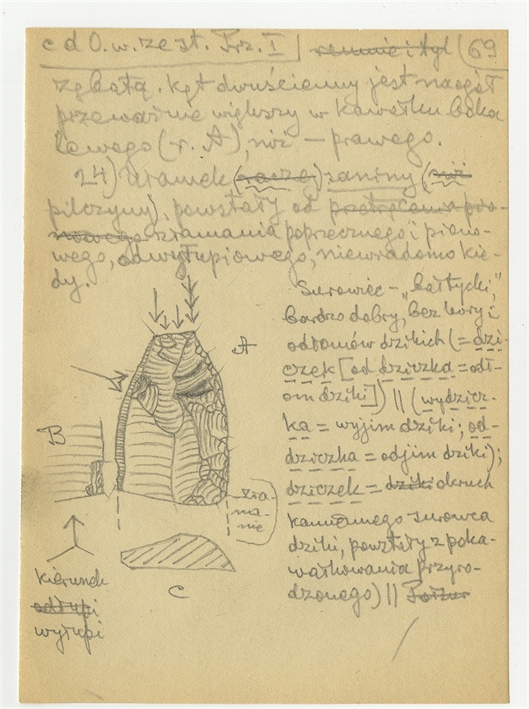 c d O. w. ze st. Prz. I | ramię i tył (69
zębatą. Kąt dwuścienny jest naogół
przeważnie większy w kawałku boka
lewego (r. A), niż – prawego.
24) Uramek (raczej) raniny (niż
pilczyny), powstały od
złamania poprzecznego i piono-
wego, odwyłupiowego, niewiadomo kie-
dy.
Surowiec – „bałtycki",
bardzo dobry, bez kory i
odłamów dzikich (= dzi-
czek [od dziczka = odł-
om dziki]) || (wydzicz-
ka = wyjim dziki; od-
dziczka = odjim dziki);
dziczek = dziki okruch
kamiennego surowca
dziki, powstały z poka-
wałkowania przyro-
dzonego) ||
A
B
zła-
ma-
nie
C
kierunek
odłupi
wyłupi